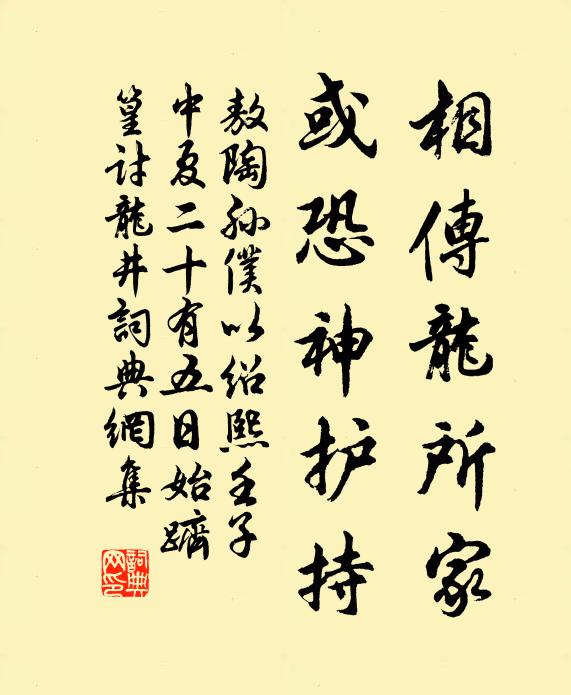 相傳龍所家
或恐神护持
敖陶孫僕以紹熙壬子
中夏二十有五日始躋
篁討龍井詞典網集
詞典网印